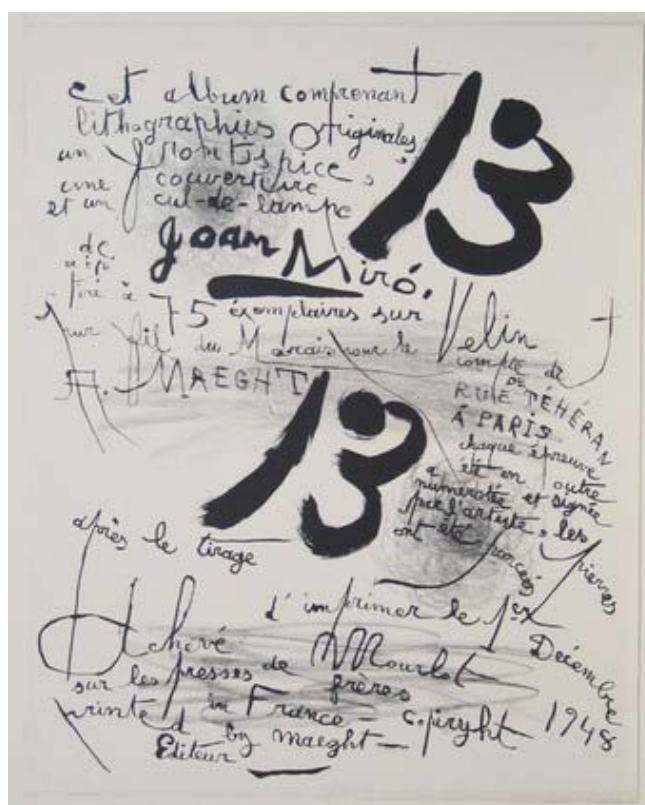 cet album comprenant 13
lithographies originales,
un frontispice,
une couverture
et un cul-de-lampe
de
Joan Miró.
a été
tiré à 75 éxemplaires sur Velin
pur fil du Marais pour le compte de
A. MAEGHT 13 DE
RUE TÉHÉRAN
À PARIS
chaque épreuve
a été en outre
numérotée et signée
par l'artiste, les pierres
ont été poncées
après le tirage
Achevé d'imprimer le 1er Décembre 1948
sur les presses de Mourlot
frères
printed in France - copyright
by maeght -
Editeur